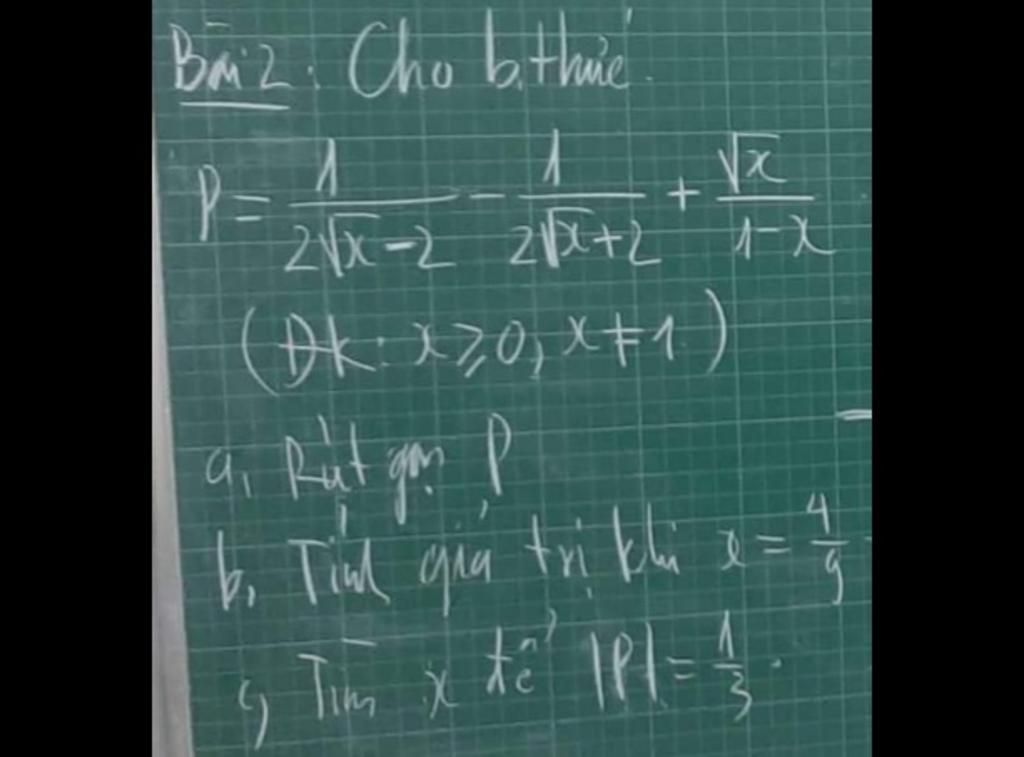 Bài 2: Cho b.thức.
P = \frac{1}{2\sqrt{x}-2} - \frac{1}{2\sqrt{x}+2} + \frac{\sqrt{x}}{1-x}
(Đk: x ≥ 0, x ≠ 1)
a, Rút gọn P
b, Tính giá trị khi x = \frac{4}{9}
c, Tìm x để |P| = \frac{1}{3}.